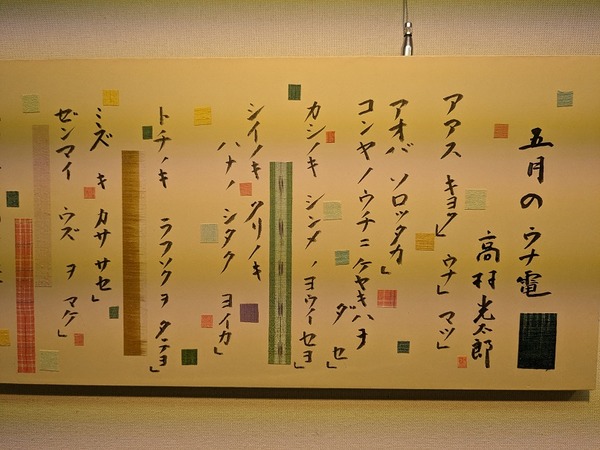 五月のウナ電
高村光太郎
アアス キヨク」 ウナ」 マツ」
アオバ ソロッタカ」
コンヤノウチニケヤキハヲ
ダセ」
カシノキ シンメノヨウイセヨ」
シイノキ クリノキ
ハナノ シタク ヨイカ」
トチノキ ラフソクヲ タテヨ」
ミズキ カササセ」
ゼンマイ ウズ ヲ マケ」